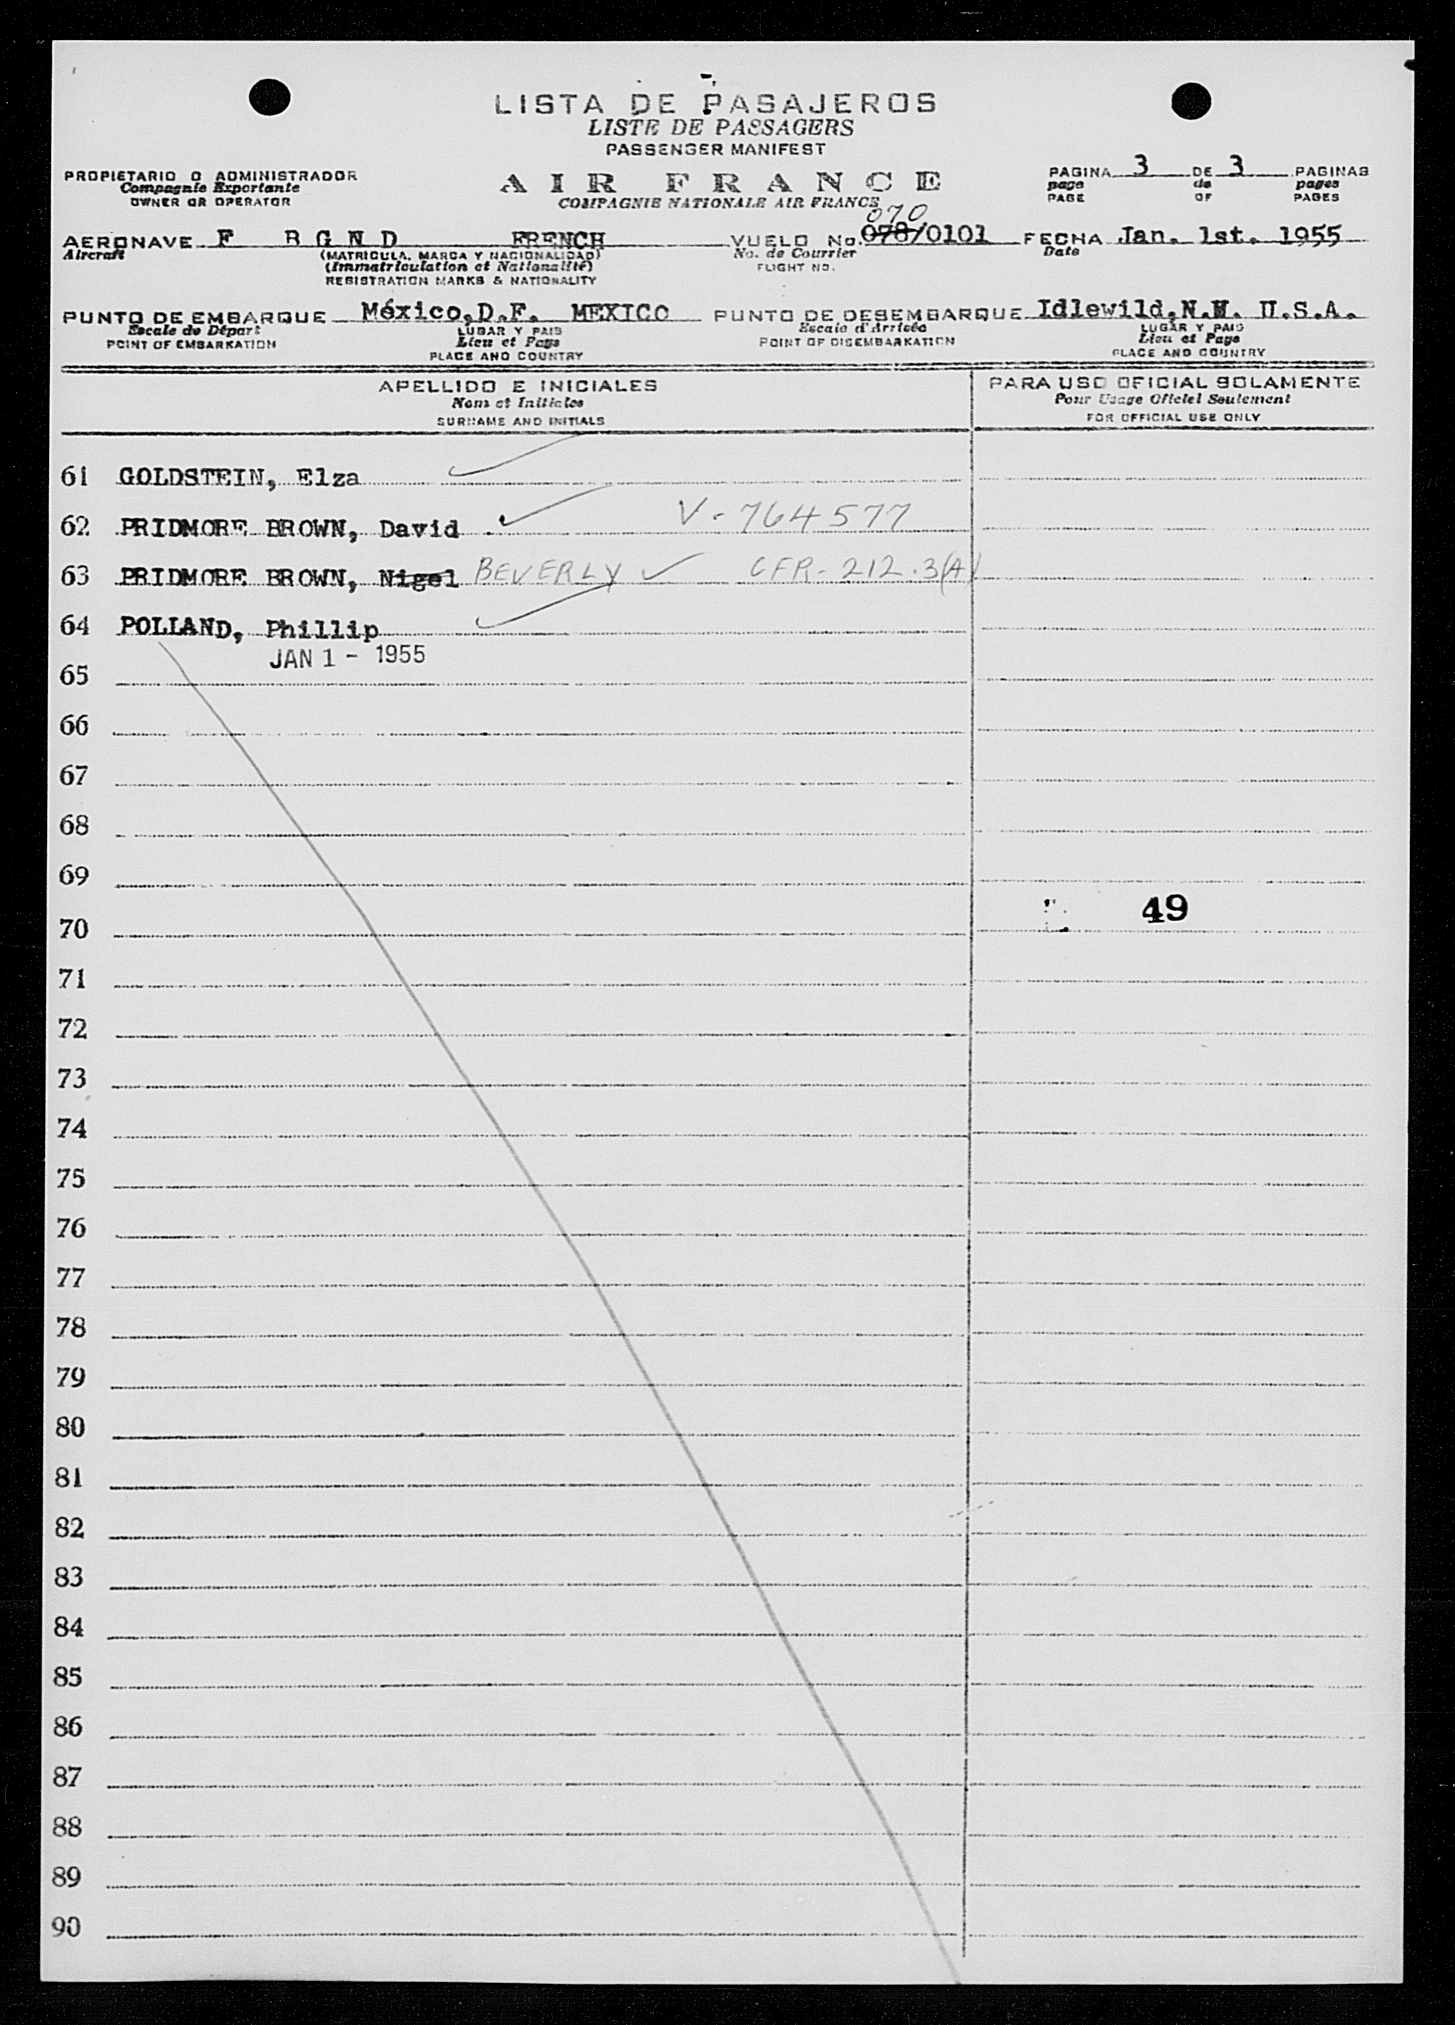 LISTA DE PASAJEROS
LISTE DE PASSAGERS
PASSENGER MANIFEST
PROPIETARIO O ADMINISTRADOR
Compagnie Exportante
OWNER OR OPERATOR
AIR FRANCE
COMPAGNIE NATIONALE AIR FRANCE
PAGINA 3 DE 3 PAGINAS
page de pages
PAGE OF PAGES
070
AERONAVE F BGND FRENCH VUELO No. 078/0101 FECHA Jan. 1st. 1955
Aircraft (MATRICULA, MARCA Y NACIONALIDAD) No. de Courrier Date
(Immatriculation et Nationalité) FLIGHT NO.
REGISTRATION MARKS & NATIONALITY
PUNTO DE EMBARQUE México,D.F. MEXICO PUNTO DE DESEMBARQUE Idlewild,N.Y. U.S.A.
Escale de Départ LUGAR Y PAIS Escale d'Arrivée LUGAR Y PAIS
POINT OF EMBARKATION Lieu et Pays POINT OF DISEMBARKATION Lieu et Pays
PLACE AND COUNTRY PLACE AND COUNTRY
APELLIDO E INICIALES PARA USO OFICIAL SOLAMENTE
Nom et Initiales Pour Usage Officiel Seulement
SURNAME AND INITIALS FOR OFFICIAL USE ONLY
61 GOLDSTEIN, Elza
62 PRIDMORE BROWN, David V-764577
63 PRIDMORE BROWN, Nigel BEVERLY CFR-212.3(A)
64 POLLAND, Phillip
JAN 1 - 1955
65
66
67
68
69
49
70
71
72
73
74
75
76
77
78
79
80
81
82
83
84
85
86
87
88
89
90